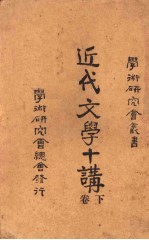 學術研究會叢書
近代文學十講
下卷
學術研究會總會發行